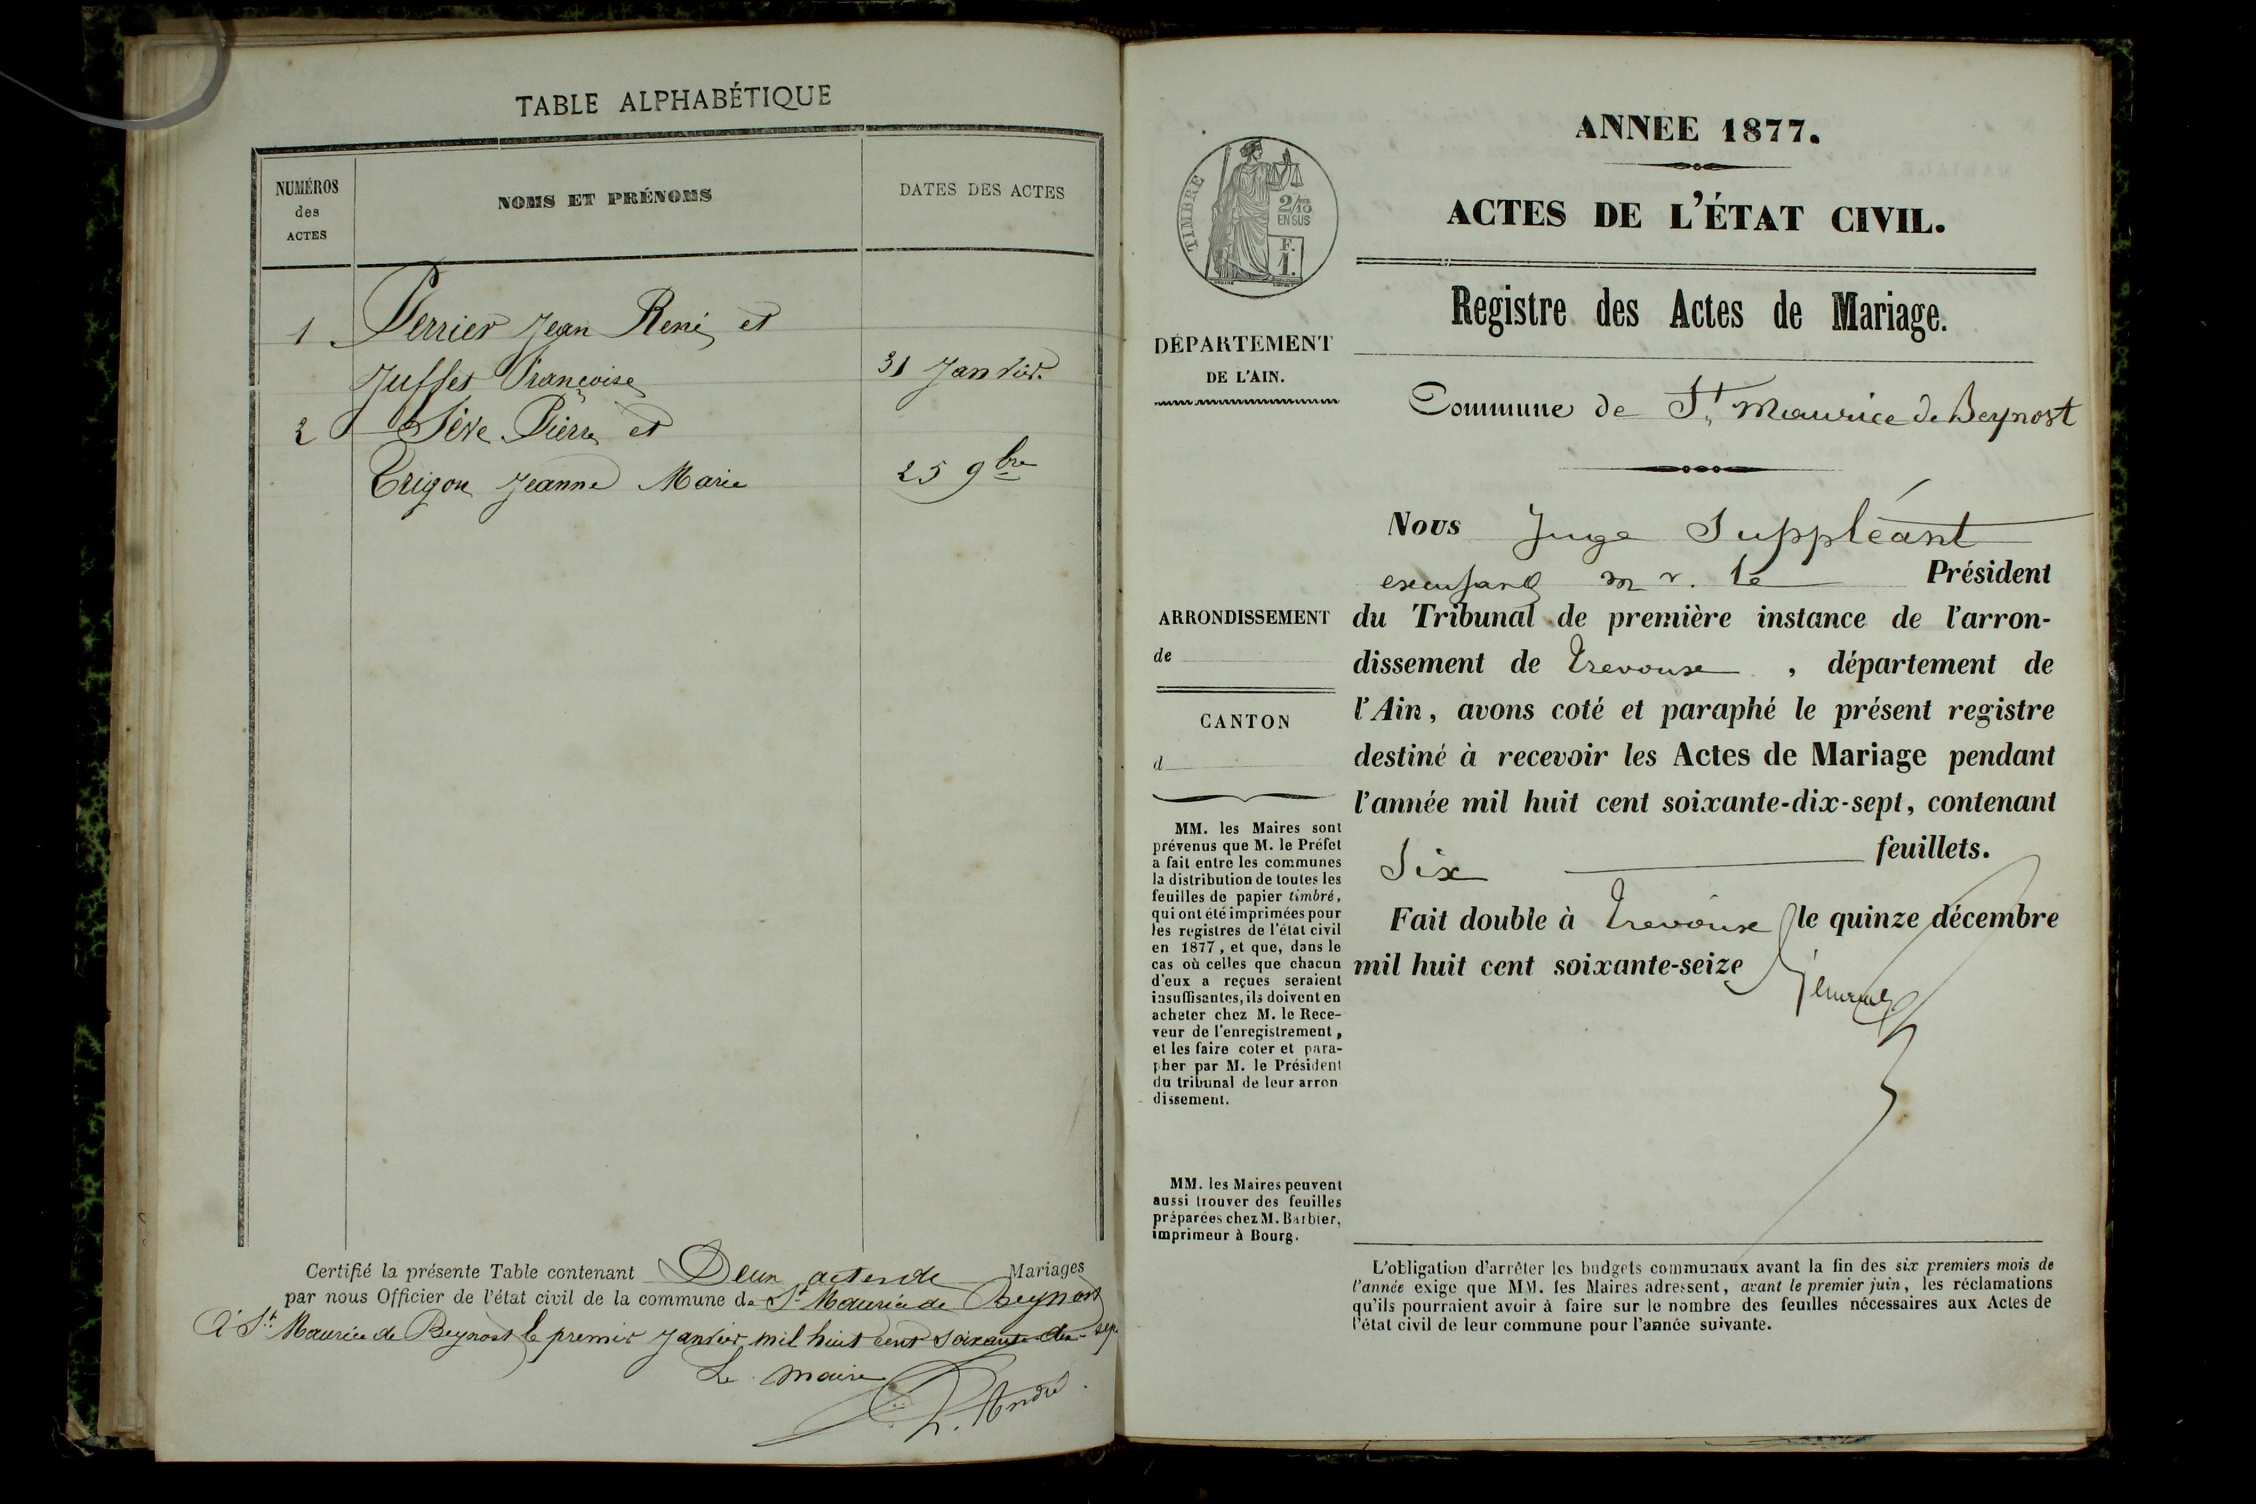 TABLE ALPHABÉTIQUE
NUMÉROS
des
ACTES
NOMS ET PRÉNOMS
DATES DES ACTES
1 Perrier Jean René et
Juffet Françoise 31 Janvier
2 Sève Pierre et
Trigon Jeanne Marie 25 9bre
Certifié la présente Table contenant Deux actes de Mariages
par nous Officier de l'état civil de la commune de St Maurice de Beynost
A St Maurice de Beynost le premier Janvier mil huit cent soixante dix-sep
Le maire
André
ANNEE 1877.
ACTES DE L'ÉTAT CIVIL.
TIMBRE
2/10
EN SUS
F.
1.
Registre des Actes de Mariage.
DÉPARTEMENT
DE L'AIN.
Commune de St Maurice de Beynost
Nous Juge Suppléant
M r. le Président
ARRONDISSEMENT
de
CANTON
d
du Tribunal de première instance de l'arron-
dissement de Trevoux , département de
l'Ain, avons coté et paraphé le présent registre
destiné à recevoir les Actes de Mariage pendant
l'année mil huit cent soixante-dix-sept, contenant
Six feuillets.
Fait double à Trevoux le quinze décembre
mil huit cent soixante-seize
MM. les Maires sont
prévenus que M. le Préfet
a fait entre les communes
la distribution de toutes les
feuilles de papier timbré,
qui ont été imprimées pour
les registres de l'état civil
en 1877, et que, dans le
cas où celles que chacun
d'eux a reçues seraient
insuffisantes, ils doivent en
acheter chez M. le Rece-
veur de l'enregistrement,
et les faire coter et para-
pher par M. le Président
du tribunal de leur arron
dissement.
MM. les Maires peuvent
aussi trouver des feuilles
préparées chez M. Barbier,
imprimeur à Bourg.
L'obligation d'arrêter les budgets communaux avant la fin des six premiers mois de
l'année exige que MM. les Maires adressent, avant le premier juin, les réclamations
qu'ils pourraient avoir à faire sur le nombre des feuilles nécessaires aux Actes de
l'état civil de leur commune pour l'année suivante.